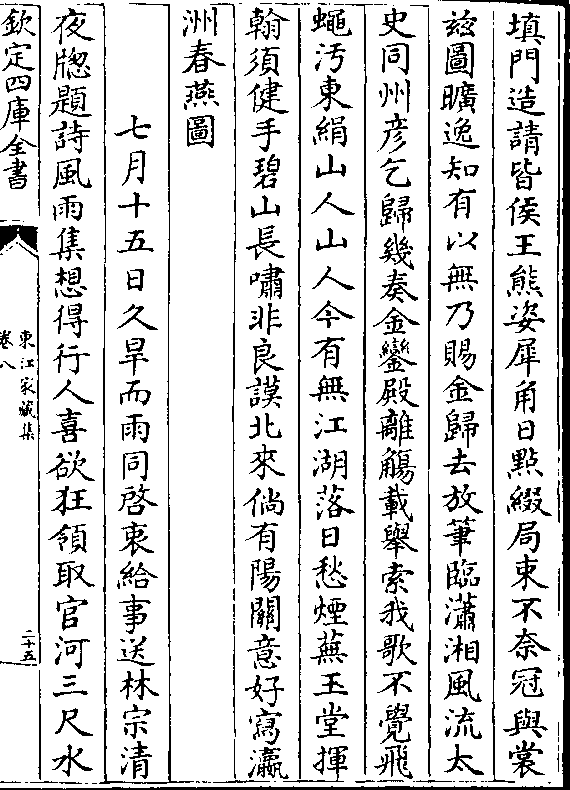 填門造請皆侯王熊姿犀角日點綴局束不奈冠與裳
兹圖曠逸知有以無乃賜金歸去放筆臨瀟湘風流太
史同州彦乞歸幾奏金鑾殿離觴載舉索我歌不覺飛
蠅汚東絹山人山人今有無江湖落日愁煙蕪玉堂揮
翰須健手碧山長嘯非良謨北來倘有陽關意好寫瀛
洲春燕圖
七月十五日久旱而雨同啓衷給事送林宗清
夜牎題詩風雨集想得行人喜欲狂領取官河三尺水
欽定四庫全書
東江家藏集
卷八
二十五